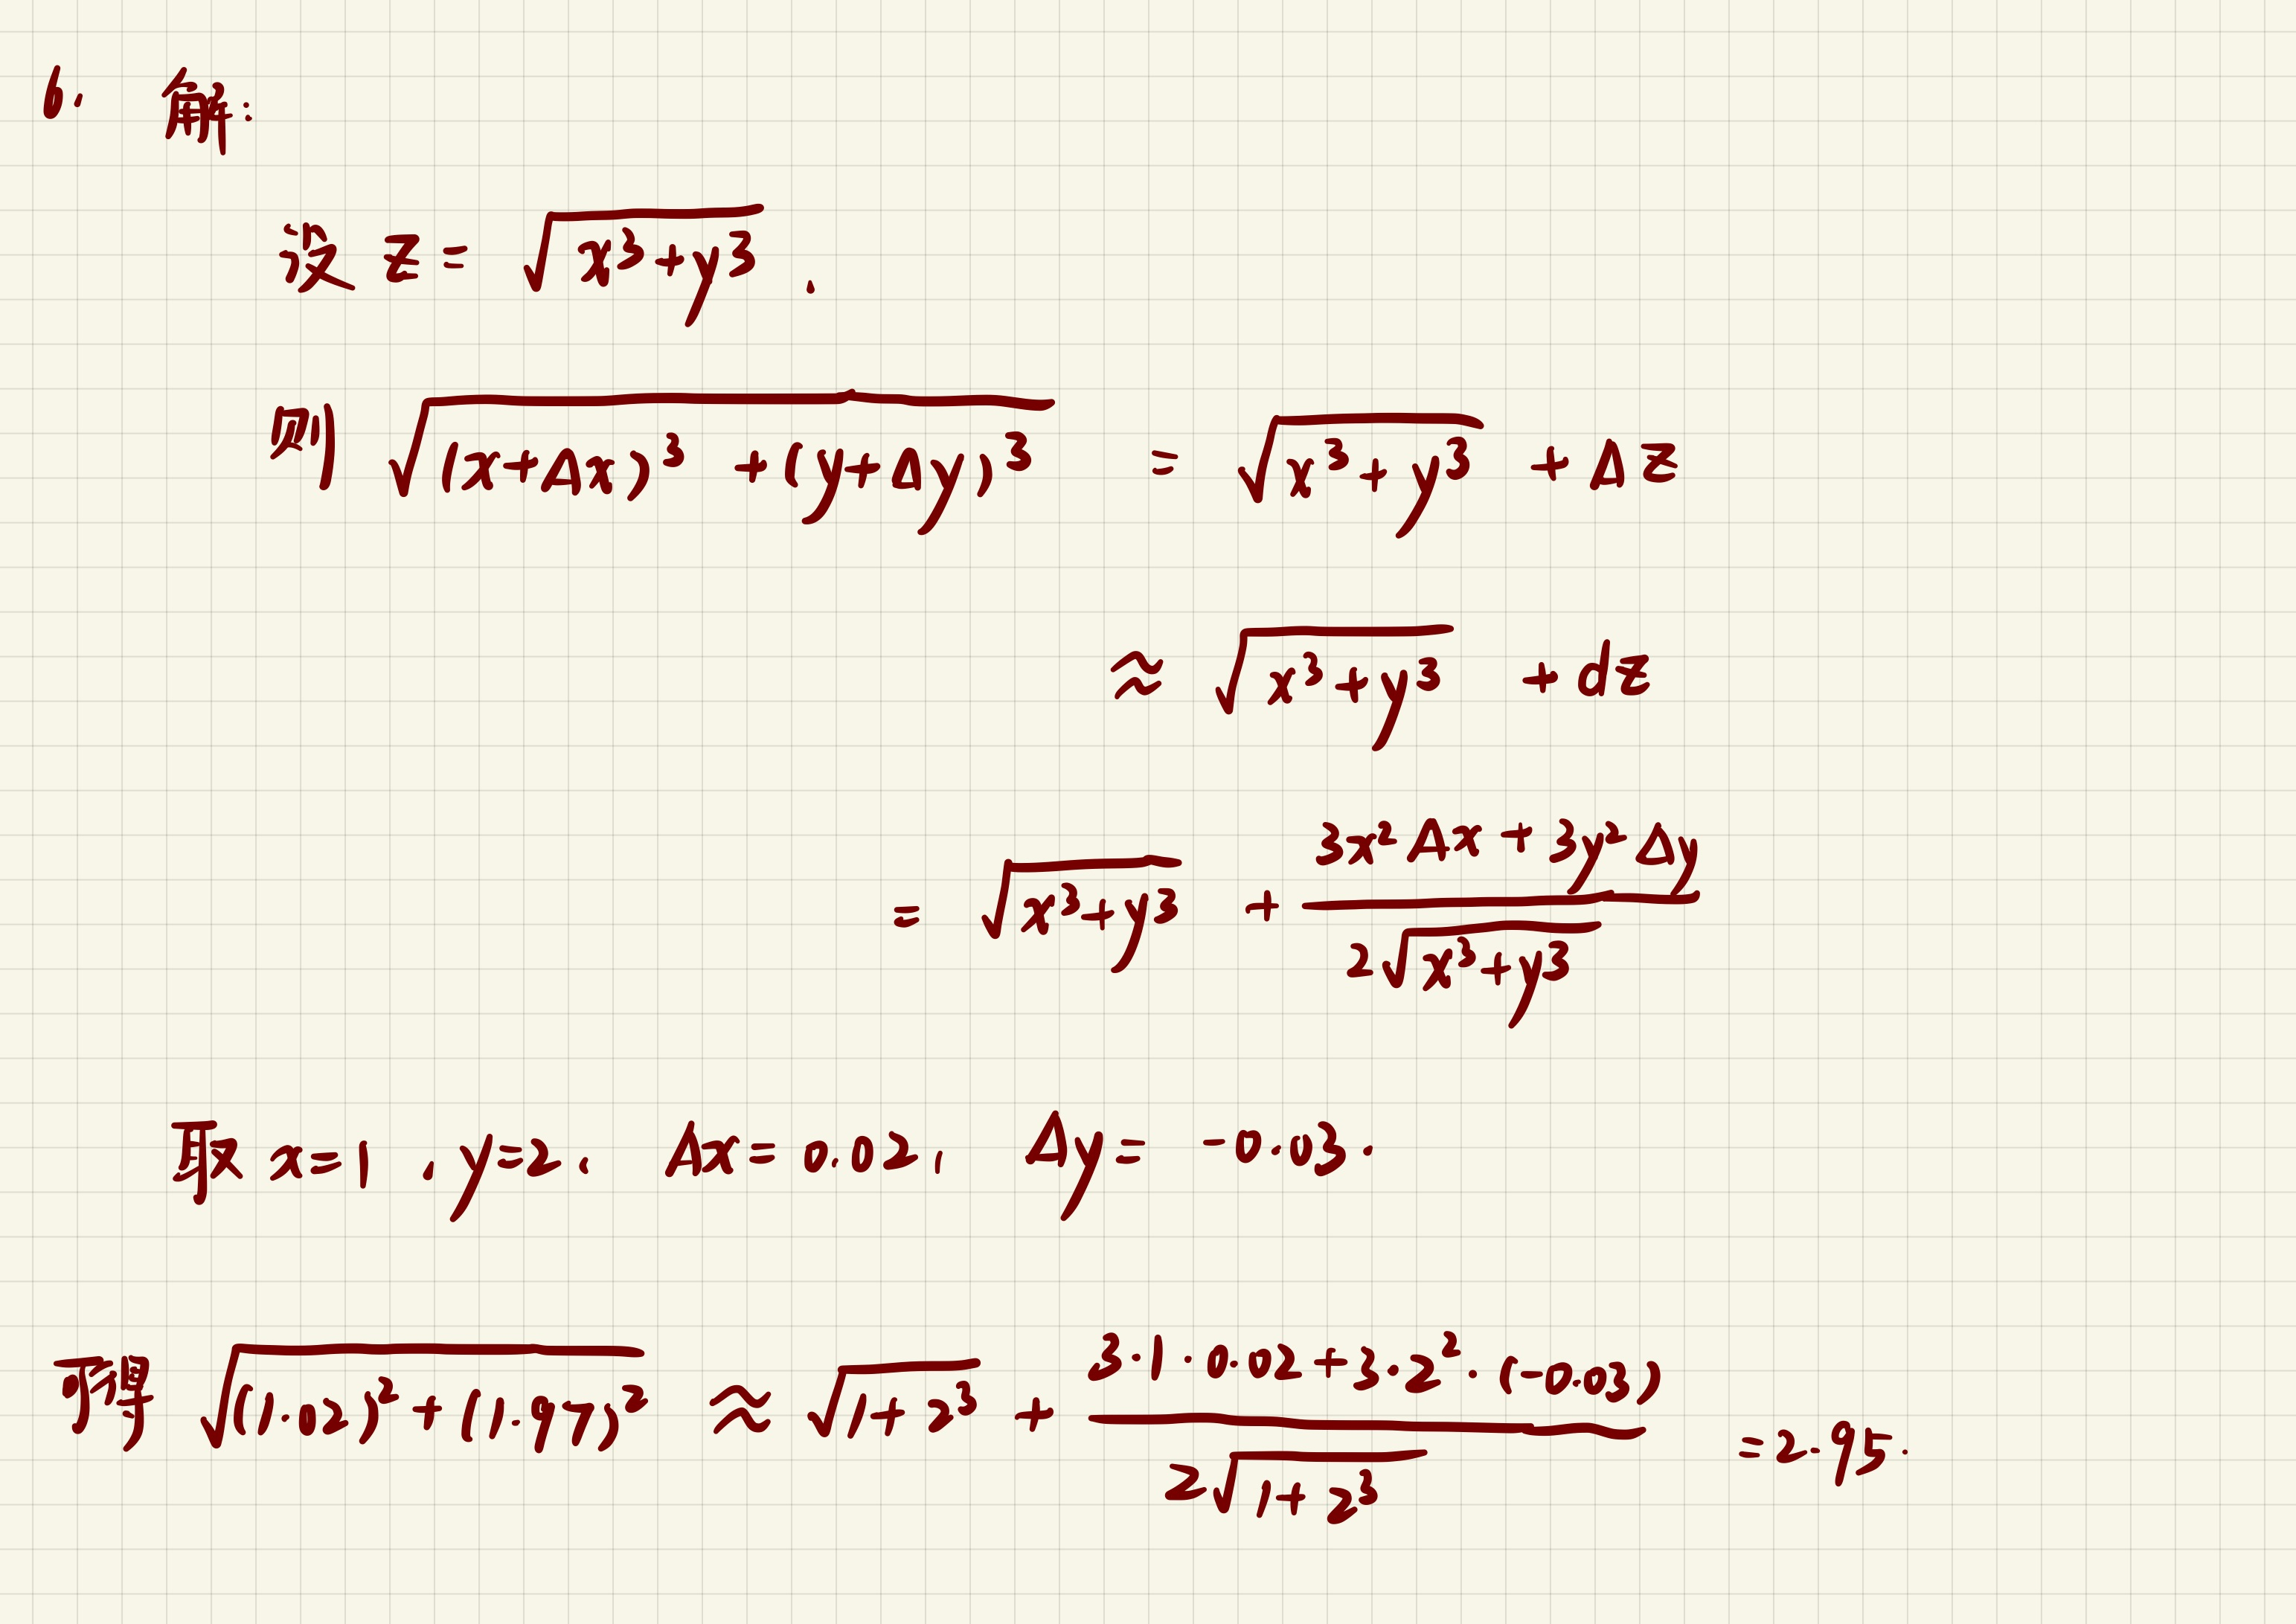 6. 解:
设 z = √(x³+y³) .
则 √((x+Δx)³ + (y+Δy)³) = √(x³+y³) + Δz
≈ √(x³+y³) + dz
= √(x³+y³) + (3x²Δx + 3y²Δy)/(2√(x³+y³))
取 x=1 , y=2 , Δx= 0.02 , Δy= -0.03 .
可得 √((1.02)²+(1.97)²) ≈ √(1+2³) + (3·1·0.02+3·2²·(-0.03))/(2√(1+2³)) =2.95.